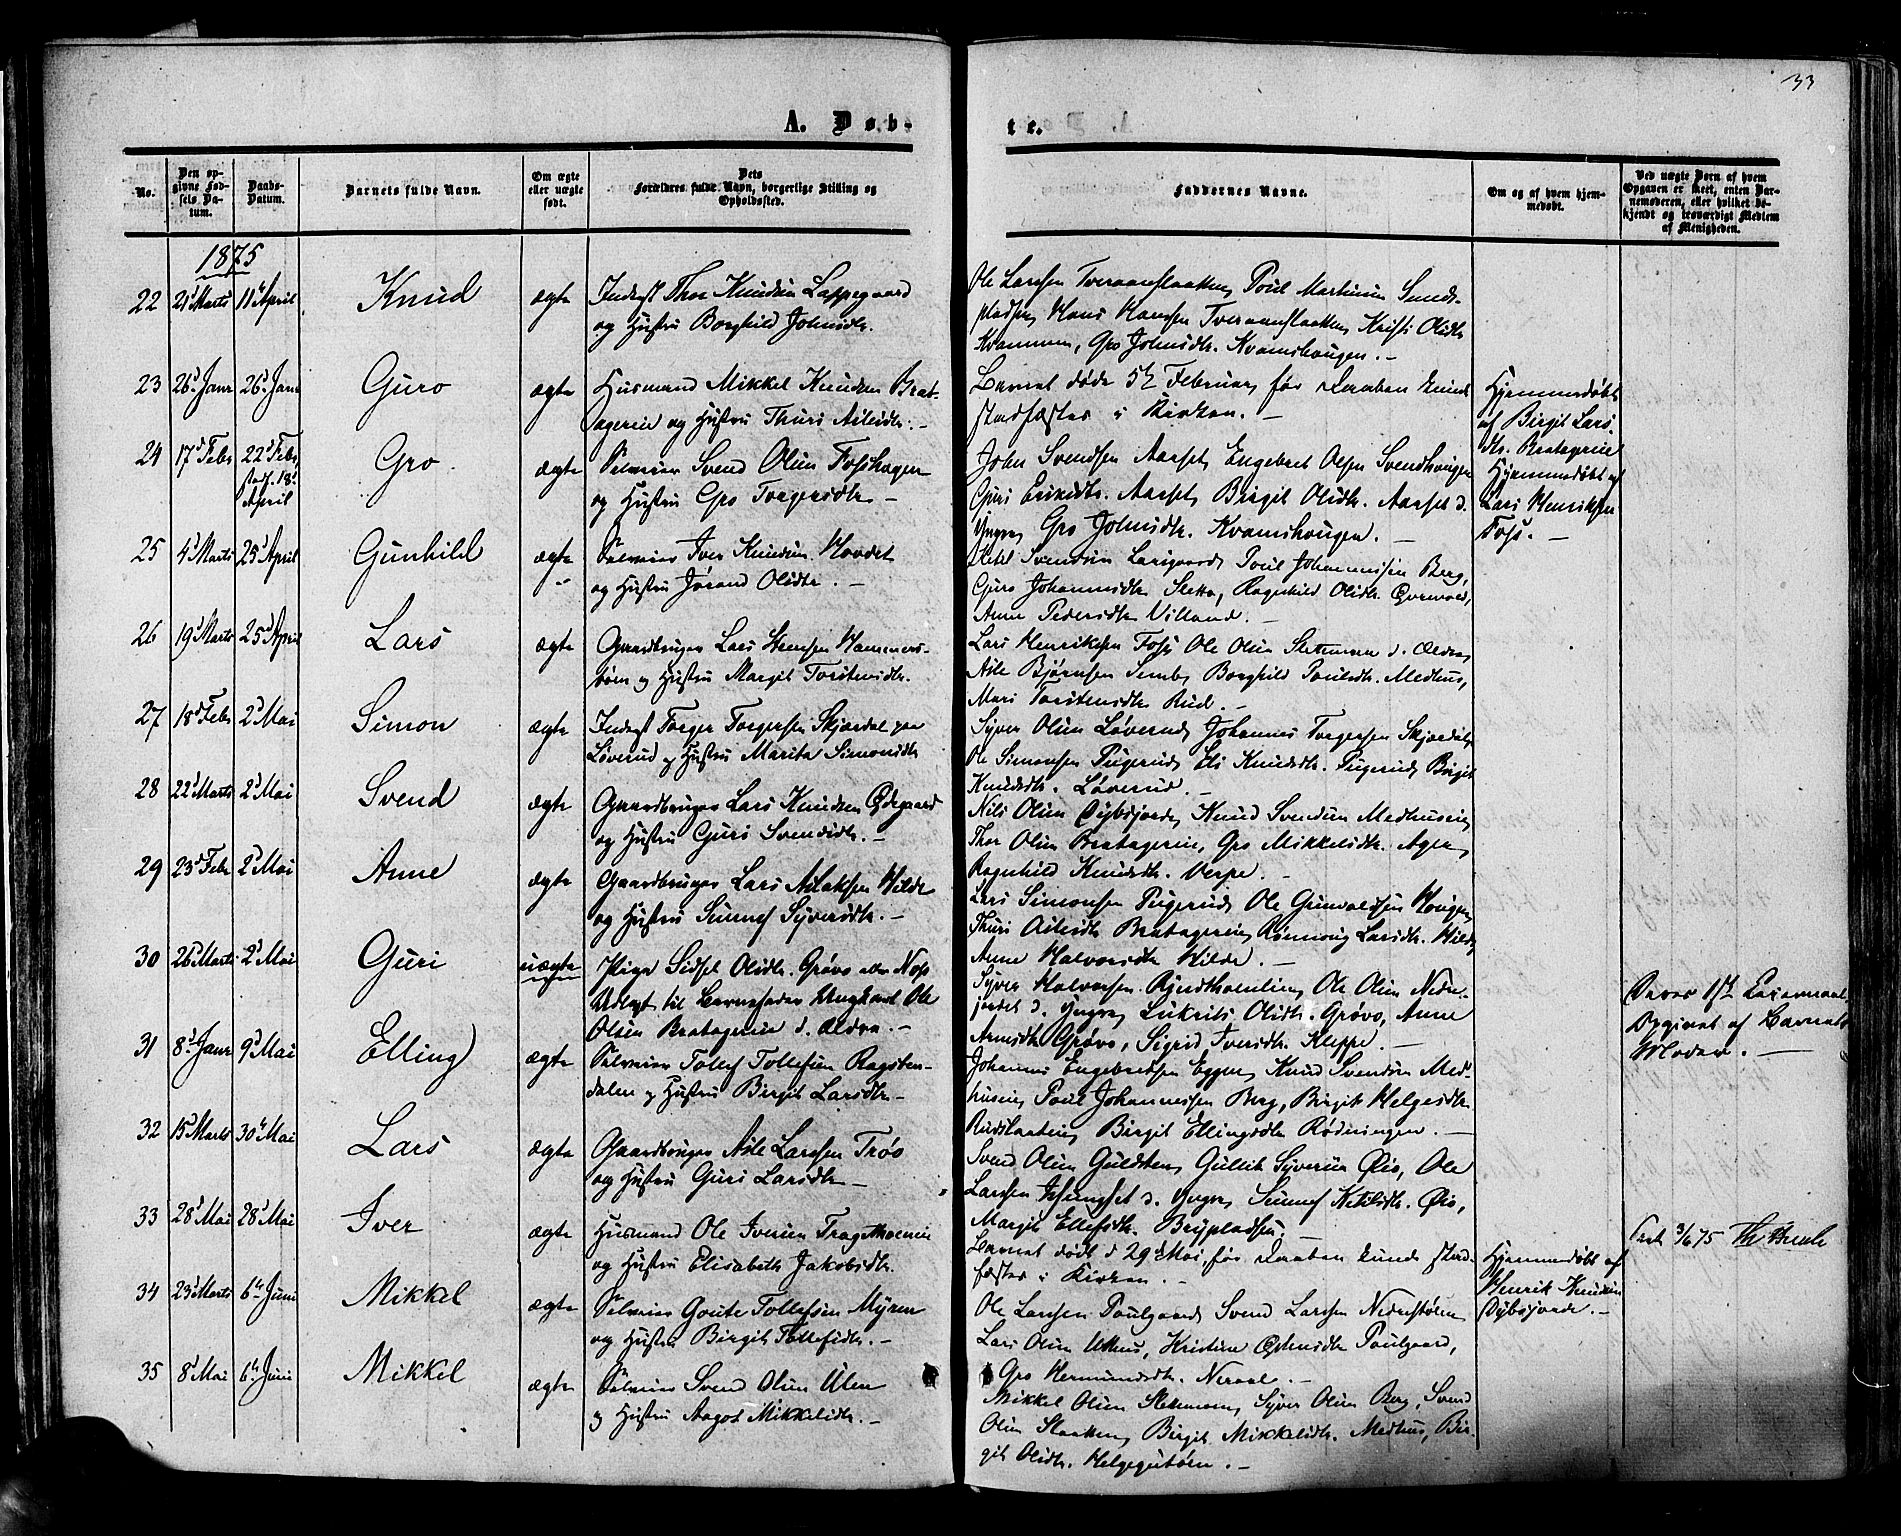 33
A. Døb-
te.
No.
Den opgivne Fødsels Datum.
Daabs-Datum.
Barnets fulde Navn.
Om ægte eller uægte født.
Dets Forældres fulde Navn, borgerlige Stilling og Opholdssted.
Faddernes Navne.
Om og af hvem hjemmedøbt.
Ved uægte Børn af hvem Opgaven er skeet, enten Barnemoderen, eller hvilket bekjendt og troværdigt Medlem af Menigheden.
1875
22 21d Marts 11te April Knud ægte Inderst Thor Knudsen Lappegaard
og Hustru Borghild Johnsdtr.
Ole Larssen Tveraanslaatten, Poul Martinsen Sunds-
pladsen, Hans Hansen Tveraanslaatten, Kristi Olsdtr
Kvammen, Gro Johnsdtr. Kvamshougen. -
23 26d Janr 26d Janr Guro ægte Husmand Mikkel Knudsen Brat-
ageren og Hustru Thuri Asledtr. -
Barnet døde 5te Februar, før Daaben kunde
stadfæstes i Kirken. -
Hjemmedøbt
af Birgit Lars-
dtr. Bratageren
24 17d Febr 22d Febr,
stadf. 18d
April
Gro ægte Selveier Svend Olsen Foshagen
og Hustru Gro Torgersdtr -
John Svendsen Aarset, Engebret Olsen Svendhougen
Guri Eriksdtr. Aarset, Birgit Olsdtr. Aarset d.
Yngre, Gro Johnsdtr. Kvamshougen. -
Hjemmedøbt af
Lars Henriksen
Foss. -
25 4d Marts 25d April Gunhild ægte Selveier Iver Knudsen Hovdet
og Hustru Jørand Olsdtr. -
Ketil Svendsen Larsgaard, Poul Johannessen Berg,
Guro Johannesdtr Sletto, Ragnhild Olsdtr.
Anne Pedersdtr Villand. -
26 19d Marts 25d April Lars ægte Gaardbruger Lars Hammers-
bøen og Hustru Margit Torstensdtr.
Lars Henriksen Foss, Ole Olsen d. Ældre,
Asle Bjørnsen Borghild Poulsdtr. Medhus,
Mari Torstensdtr Rud. -
27 18d Febr 2d Mai Simon ægte Inderst Torger Torgersen Skjerdal paa
Løverud og Hustru Marita Simonsdtr
Syver Olsen Løverud, Johannes Torgersen Skjærdal,
Ole Simonsen Pugerud, Eli Knudsdtr. Pugerud, Birgit
Knudsdtr. Løverud. -
28 22d Marts 2d Mai Svend ægte Gaardbruger Lars Knudsen Ødegaard
og Hustru Guri Svendsdtr. -
Nils Olsen Dybsjord, Knud Svendsen Medhuseie,
Thor Olsen Brataageren, Gro Mikkelsdtr. Ager,
Ragnhild Knudsdtr. Verpe. -
29 23d Febr 2d Mai Anne ægte Gaardbruger Lars Aslaksen Hilde
og Hustru Sunnef Syversdtr. -
Lars Simonsen Pugerud, Ole Gunvaldsen Hougen,
Thuri Aslesdtr Bratageren, Rønnoug Larsdtr. Hilde,
Anne Halvorsdtr Hilde. -
30 26d Marts 2d Mai Guri uægte Pige Sidsel Olsdtr. Grøvo
Udlagt til Barnefader Ungkarl Ole
Olsen Bratageren d. Ældre. -
Syver Halvorsen Ole Olsen Nedre-
jordet d. Yngre, Lukrits Olsdtr. Grøvo, Anne
Arnesdtr Grøvo, Sigrid Iversdtr. Kleppe. -
Deres 1ste Leiermaal.
Opgivet af Barnets
Moder. -
31 8d Janr 9d Mai Elling ægte Selveier Tollef Tollefsen Ragsten-
dalen og Hustru Birgit Larsdtr -
Johannes Engebretsen Eggen, Knud Svendsen Med-
huseie, Poul Johannessen Berg, Birgit Helgesdtr
Rudslaatten, Birgit Ellingsdtr Rødningen. -
32 15d Marts 30te Mai Lars ægte Gaardbruger Asle Larssen Trøo
og Hustru Guri Larsdtr -
Svend Olsen Guldsten, Gullik Syversen Øio, Ole
Larssen d. Yngre, Sunnef Ketilsdtr. Øio,
Margit Ellefsdtr.
33 28d Mai 28d Mai Iver ægte Husmand Ole Iversen
og Hustru Elisabeth Jakobsdtr.
Barnet dødt d 29d Mai, før Daaben kunde stad-
fæstes i Kirken. -
Hjemmedøbt af
Henrik Knudsen
Dybsjord. -
3/6 75
34 23d Marts 6te Juni Mikkel ægte Selveier Goute Tollefsen Myren
og Hustru Birgit Tollefsdtr. -
Ole Larssen Poulgaard, Svend Larssen Nedrestølen
Lars Olsen Uthus, Kristine Poulgaard,
Gro Hermundsdtr. Neraal. -
35 8d Mai 6te Juni Mikkel ægte Selveier Svend Olsen Ulen
og Hustru Aagot Mikkelsdtr. -
Mikkel Olsen Syver Olsen Berg, Svend
Olsen Slaatten, Birgit Mikkelsdtr. Medhus, Bir-
git Olsdtr. Helgegutøen. -